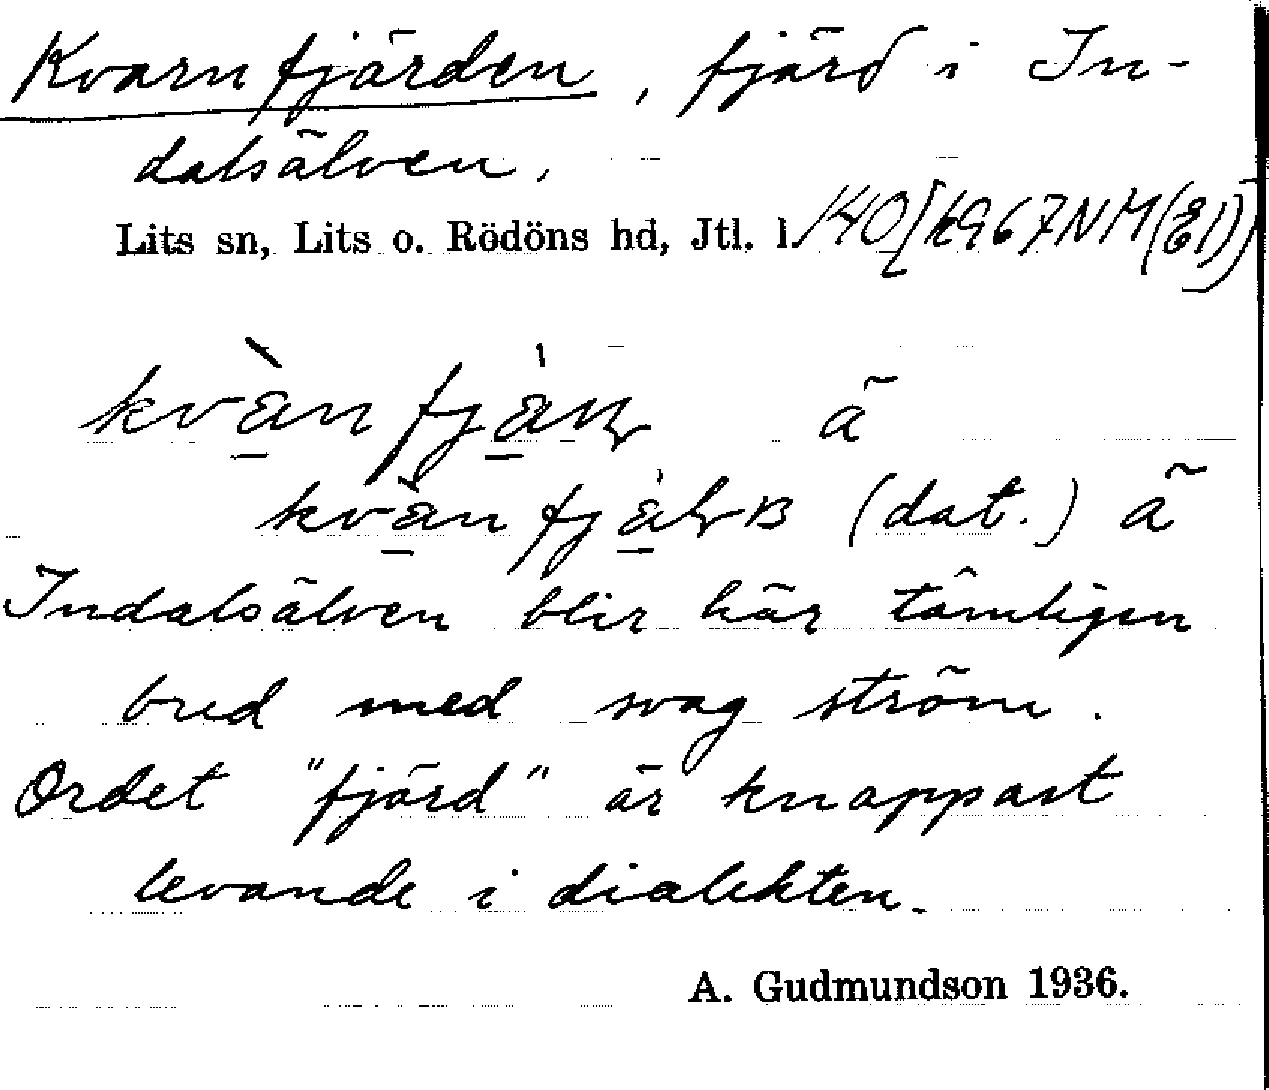 Kvarnfjärden, fjärd i In-
dalsälven.
Lits sn, Lits o. Rödöns hd, Jtl. l.
ä
(dat.) ä
Indalsälven blir här tämligen
bred med svag ström.
Ordet "fjärd" är knappast
levande i dialekten.
A. Gudmundson 1936.